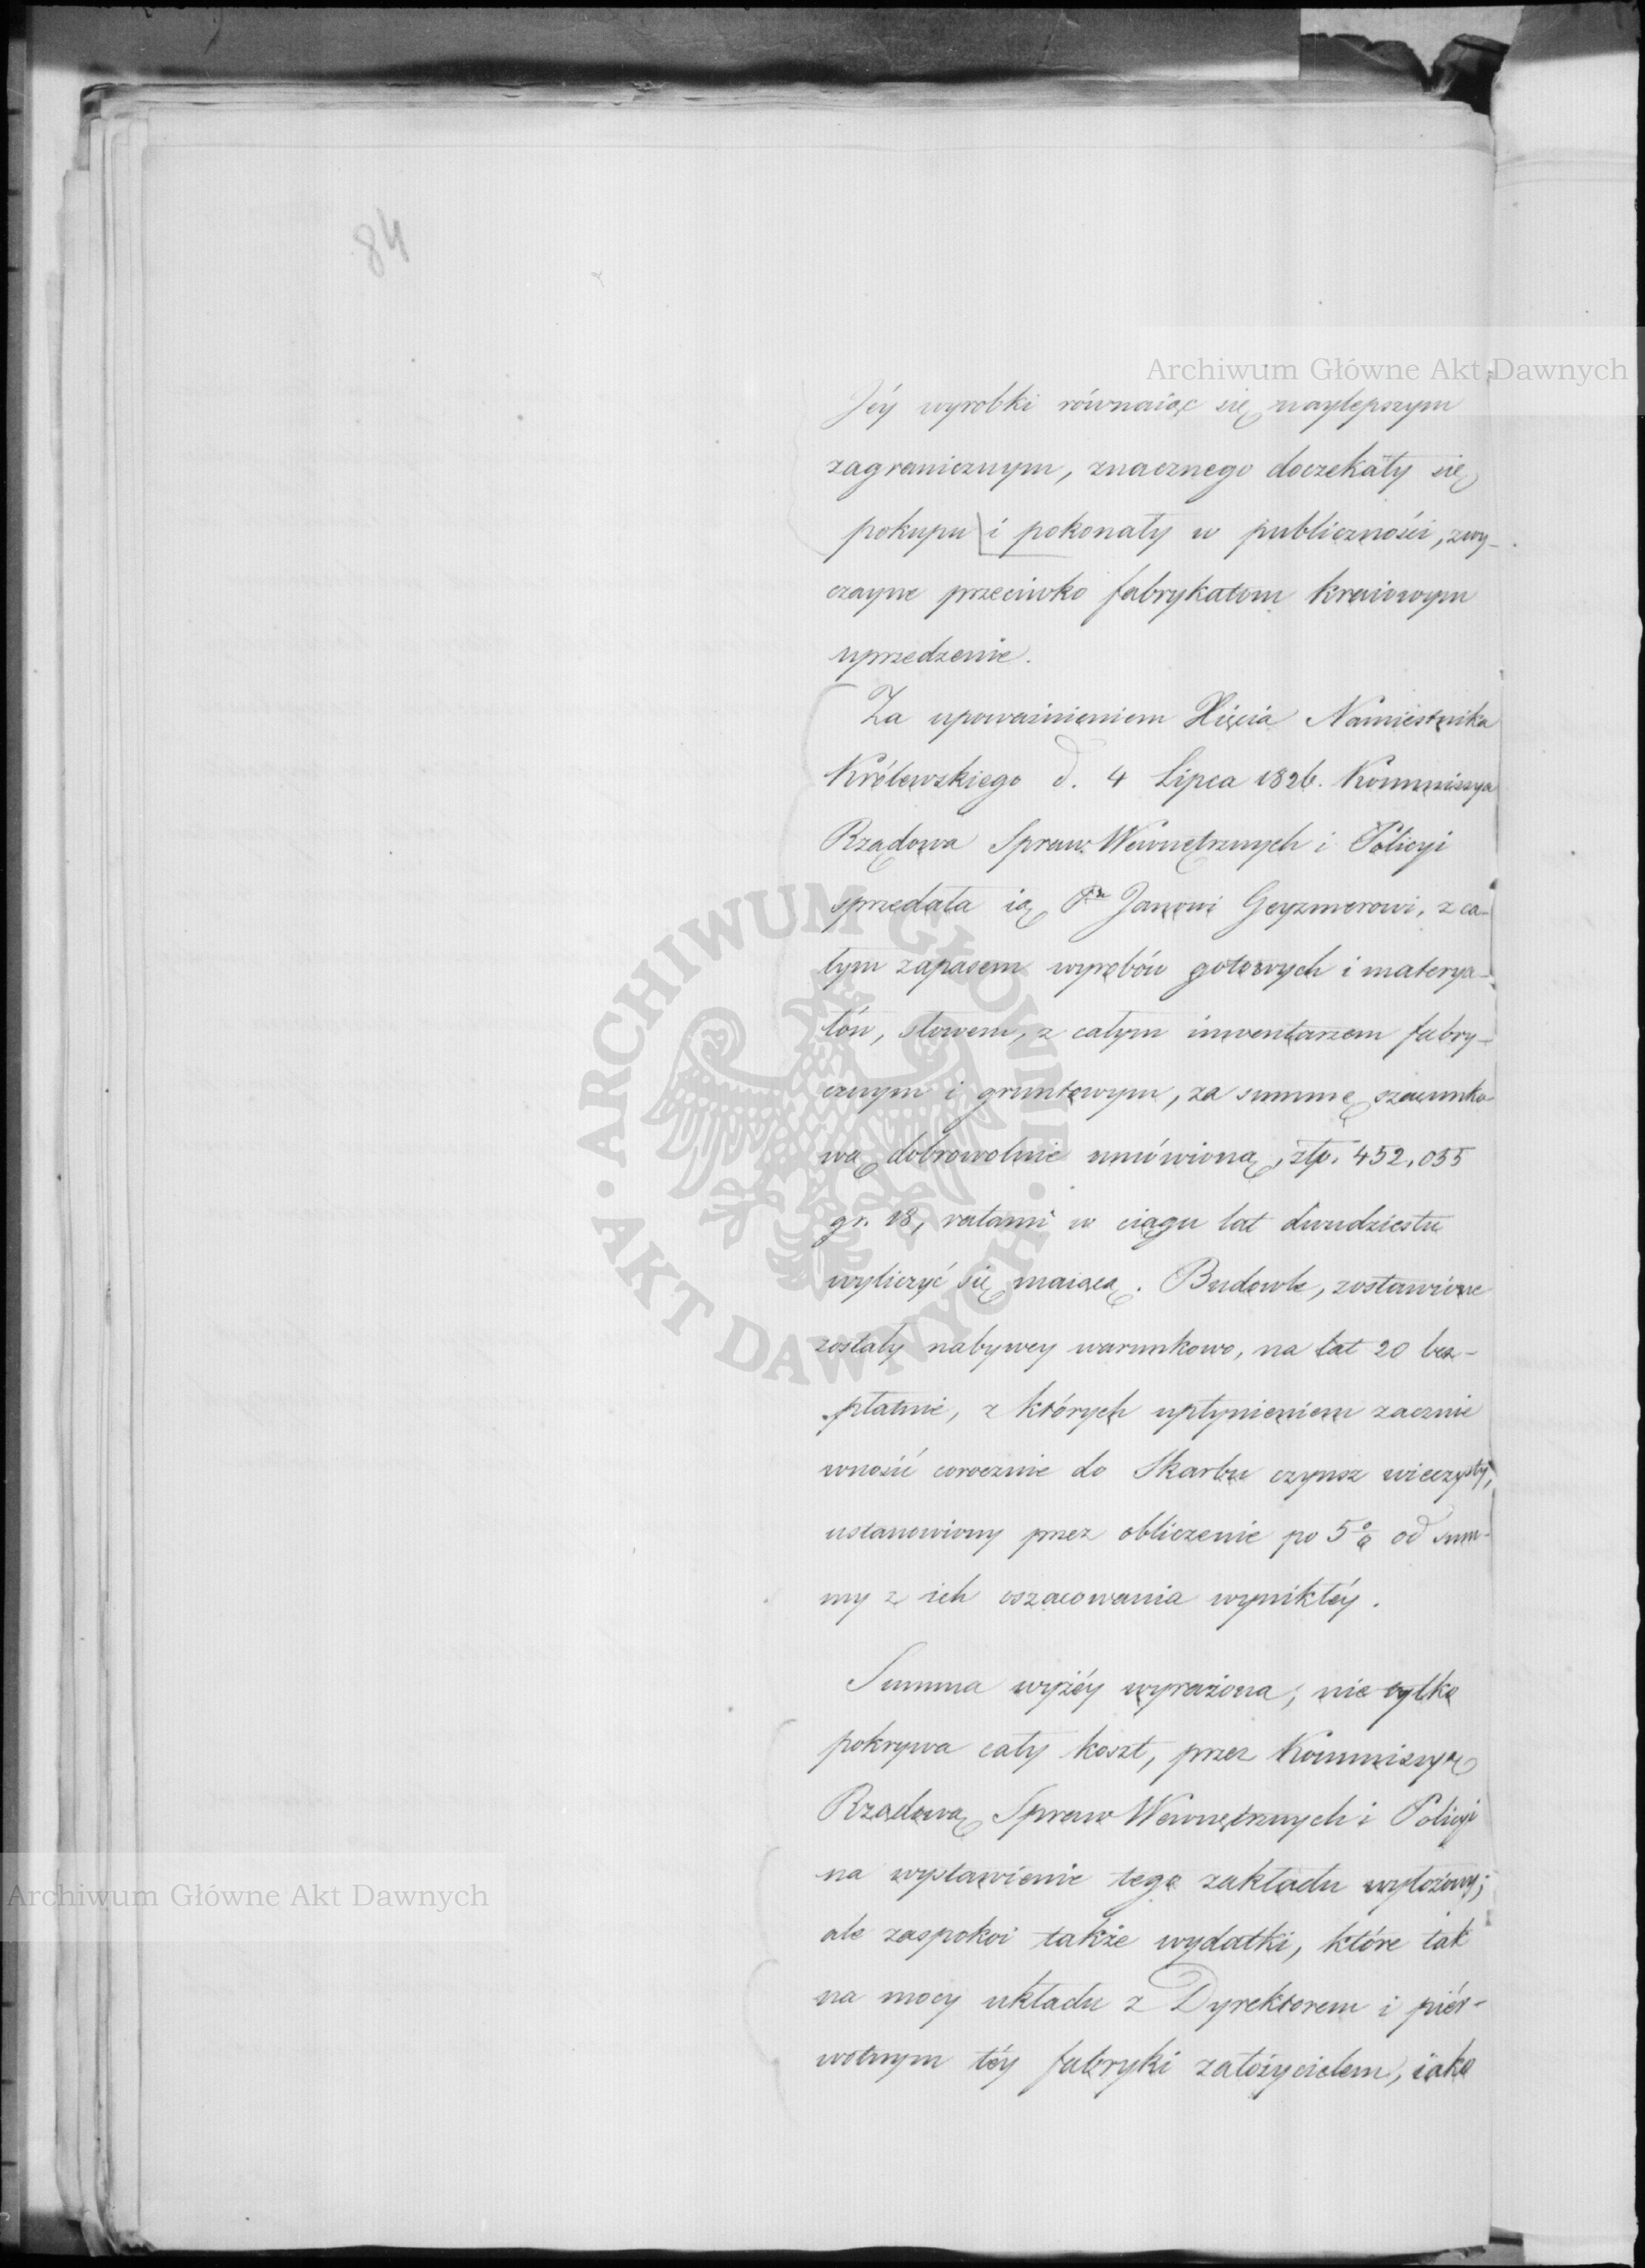 84
Archiwum Główne Akt Dawnych
Jéy wyrobki równaiąc się naylepszym
zagranicznym, znacznego doczekały się
pokupu i pokonały w publiczności, zwy-
czayne przeciwko fabrykatom kraiowym
uprzedzenie.
Za upoważnieniem Xięcia Namiestnika
Królewskiego d. 4 Lipca 1826. Kommissya
Rządowa Spraw Wewnętrznych i Policyi
sprzedała ią Pu Janowi Geyzmerowi, z ca-
łym zapasem wyrobów gotowych i materya-
łów, słowem, z całym inwentarzem fabry-
cznym i gruntowym, za summę szacunko
wą dobrowolnie umówioną, złp. 452,055
gr. 18, ratami w ciągu lat dwudziestu
wyliczyć się maiącą. Budowle, zostawione
zostały nabywcy warunkowo, na lat 20 bez-
płatnie, z których upłynieniem zacznie
wnosić corocznie do Skarbu czynsz wieczysty,
ustanowiony przez obliczenie po 5% od sum-
my z ich oszacowania wynikłéy.
Summa wyżéy wyrażona, nie tylko
pokrywa cały koszt, przez Kommissyą
Rządową Spraw Wewnętrznych i Policyi
na wystawienie tego zakładu wyłożony;
ale zaspokoi także wydatki, które tak
na mocy układu z Dyrektorem i piér-
wotnym téy fabryki założycielem, iako
Archiwum Główne Akt Dawnych
ARCHIWUM GŁÓWNE
AKT DAWNYCH